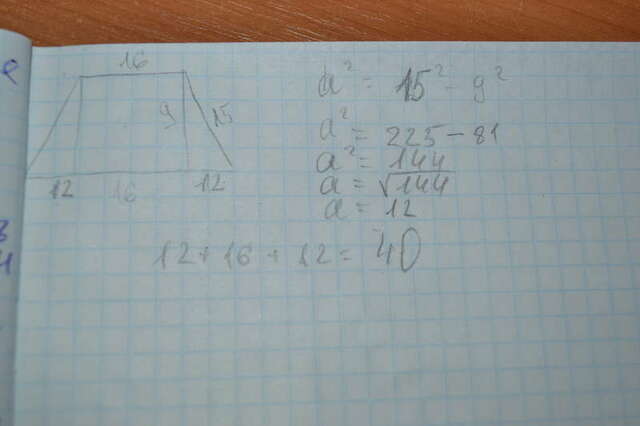 16
9
15
12 16 12
a² = 15² - 9²
a² = 225 - 81
a² = 144
a = √144
a = 12
12 + 16 + 12 = 40